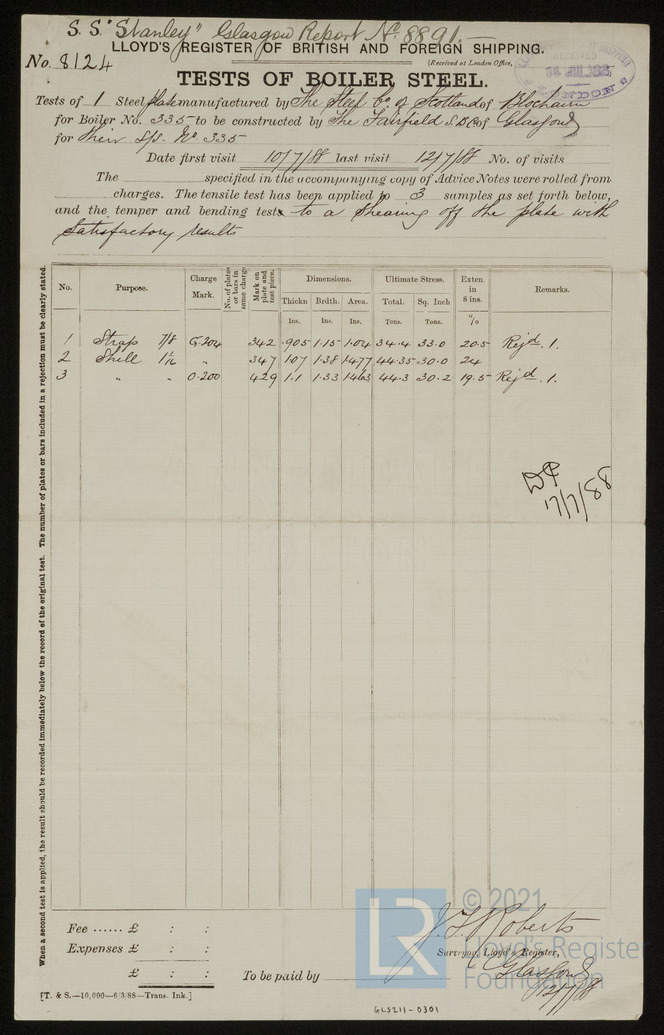 S. S. "Stanley" Glasgow Report No. 8891.—
LLOYD'S REGISTER OF BRITISH AND FOREIGN SHIPPING.
No. 8124
(Received at London Office,
TESTS OF BOILER STEEL.
Tests of 1 Steel plate manufactured by The Steel Co. of Scotland of Blochairn
for Boiler No. 335 to be constructed by The Fairfield S.B.Co of Glasgow
for Their S/S. No 335
Date first visit 10/7/88 last visit 12/7/88 No. of visits
The specified in the accompanying copy of Advice Notes were rolled from
charges. The tensile test has been applied to 3 samples as set forth below,
and the temper and bending tests to a shearing off the plate with
satisfactory results
No. Purpose. Charge Mark. No. of plates or bars in same charge Mark on plate and test piece. Dimensions. Ultimate Stress. Exten in 8 ins. Remarks.
Thickn Brdth. Area. Total. Sq. Inch
Ins. Ins. Ins. Tons. Tons. %
1 Strap 7/8 0.204 342 .905 1.15 1.04 34.4 33.0 20.5 Rejd. 1.
2 Shell 1 1/16 " 347 107 1.38 1.477 44.35 30.0 24
3 " " 0.200 429 1.1 1.33 1.463 44.3 30.2 19.5 Rejd. 1.
17/7/88
When a second test is applied, the result should be recorded immediately below the record of the original test. The number of plates or bars included in a rejection must be clearly stated.
Fee ...... £ : :
Expenses £ : :
£ : :
To be paid by
Surveyor, Lloyd's Register,
Glasgow
12/7/88
[T. & S.—10,000—6/3/88—Trans. Ink.]
GLS211-0301
LR
© 2021
Lloyd's Register
Foundation